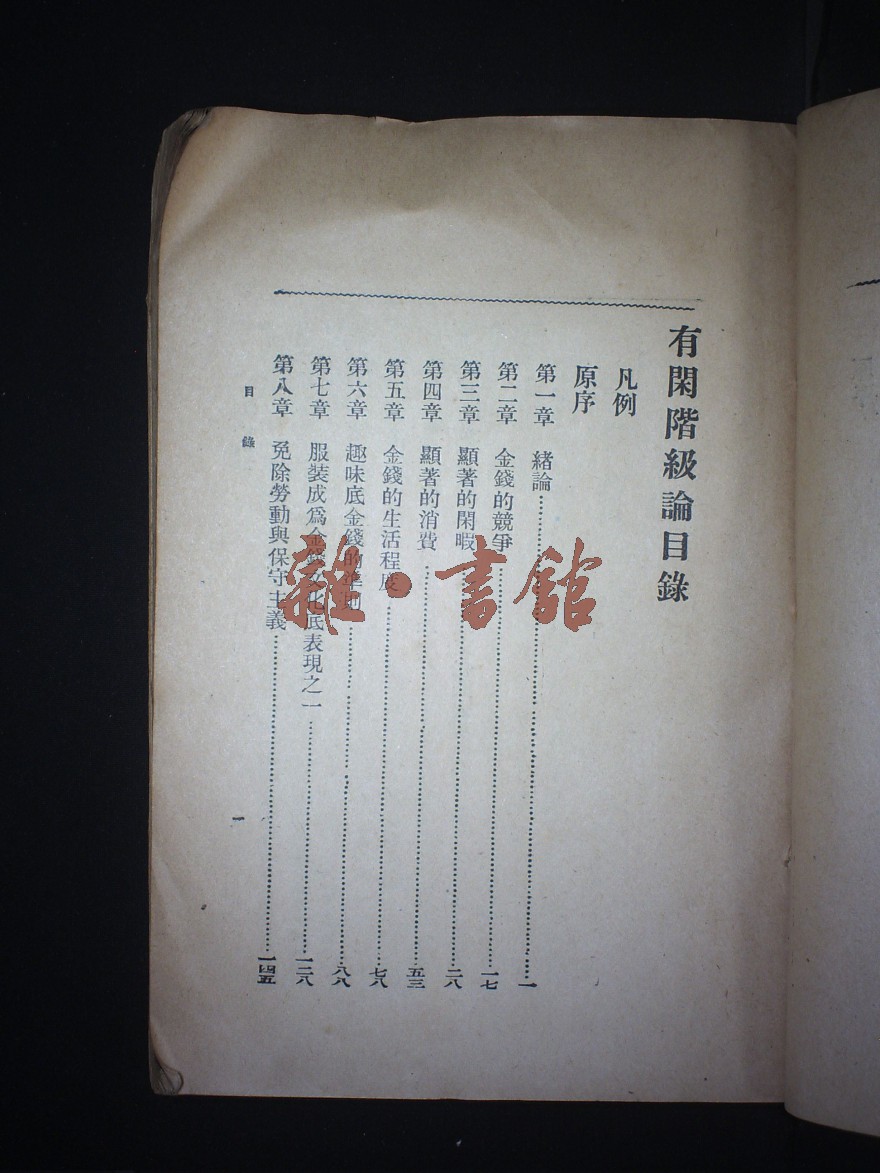 有閑階級論目錄
凡例
原序
第一章 緒論……一
第二章 金錢的競爭……一七
第三章 顯著的閑暇……二八
第四章 顯著的消費……五三
第五章 金錢的生活程度……七八
第六章 趣味底金錢的準則……八八
第七章 服裝成爲金錢文化底表現之一……一二八
第八章 免除勞動與保守主義……一四五
目錄 一
雜·書館